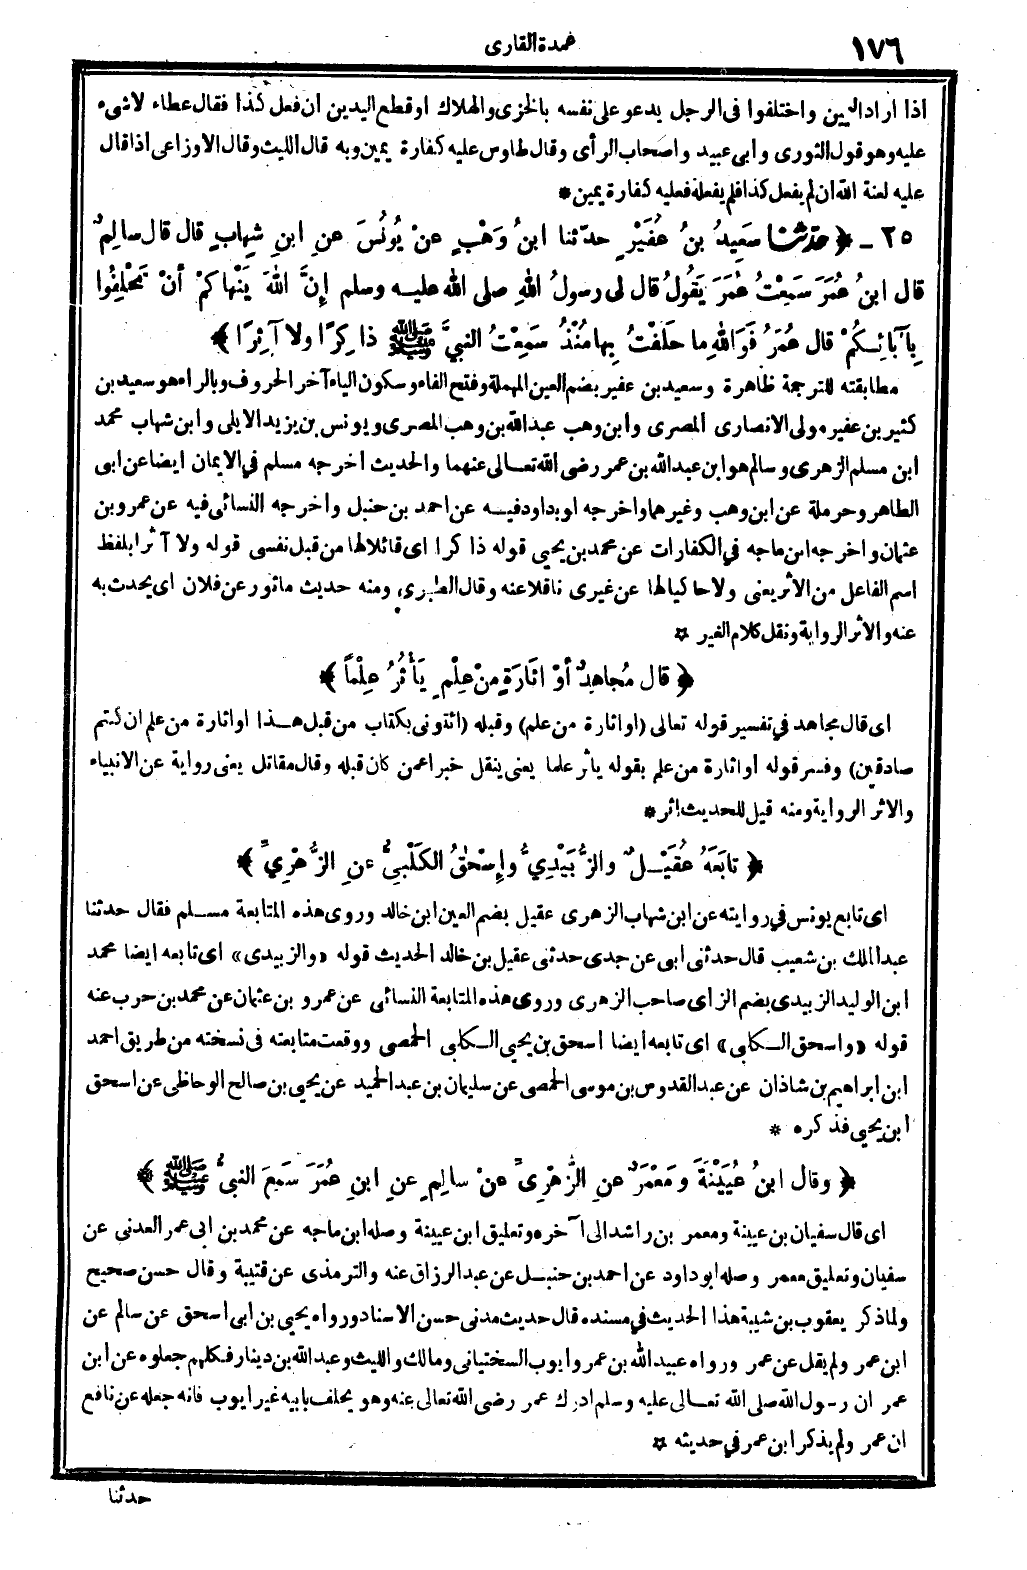 ١٧٦
عمدة القارى
اذا اراد اليمين واختلفوا فى الرجل يدعو على نفسه بالخزى والهلاك او قطع اليدين ان فعل كذا فقال عطاء لاشىء
عليه وهو قول الثورى وأبى عبيد واصحاب الرأى وقال طاوس عليه كفارة يمين وبه قال الليث وقال الاوزاعى اذا قال
عليه لعنة الله ان لم يفعل كذا فلم يفعله فعليه كفارة يمين *
٢٥ - ﴿ حدّثنا سَعِيدُ بنُ عُفَيْرٍ حدّثنا ابنُ وَهْبٍ عنْ يُونُسَ عنِ ابنِ شِهابٍ قال قال سالِمٌ
قال ابنُ عُمَرَ سَمِعْتُ عُمَرَ يَقُولُ قال لى رسولُ اللهِ صلى الله عليه وسلم إنَّ اللهَ يَنْهاكُمْ أنْ تَحْلِفُوا
بِآبائِكُمْ قال عُمَرُ فَوَاللهِ ما حلَفْتُ بِها مُنْذُ سَمِعْتُ النبيَّ ﷺ ذاكِرًا ولا آثِرًا ﴾
مطابقته للترجمة ظاهرة وسعيد بن عفير بضم العين المهملة وفتح الفاء وسكون الياء آخر الحروف وبالراء هو سعيد بن
كثير بن عفير مولى الانصارى المصرى وابن وهب عبدالله بن وهب المصرى ويونس بن يزيد الايلى وابن شهاب محمد
ابن مسلم الزهرى وسالم هو ابن عبدالله بن عمر رضى الله تعالى عنهما والحديث اخرجه مسلم فى الايمان ايضا عن ابى
الطاهر وحرملة عن ابن وهب وغيرهما واخرجه ابو داود فيه عن احمد بن حنبل واخرجه النسائى فيه عن عمرو بن
عثمان واخرجه ابن ماجه فى الكفارات عن محمد بن يحيى قوله ذاكرا اى قائلا لها من قبل نفسى قوله ولا آثرا بلفظ
اسم الفاعل من الأثر يعنى ولا حاكيا لها عن غيرى ناقلا عنه وقال الطبرى ومنه حديث مأثور عن فلان اى يحدث به
عنه والاثر الرواية ونقل كلام الغير *
﴿ قال مُجاهِدٌ أوْ اثارَةٍ مِنْ عِلْمٍ يَأْثُرُ عِلْماً ﴾
اى قال مجاهد فى تفسير قوله تعالى (او اثارة من علم) وقبله (ائتونى بكتاب من قبل هذا او اثارة من علم ان كنتم
صادقين) وفسر قوله أو اثارة من علم بقوله يأثر علما يعنى ينقل خبرا عمن كان قبله وقال مقاتل يعنى رواية عن الانبياء
والاثر الرواية ومنه قيل للحديث اثر *
﴿ تابَعَهُ عُقَيْلٌ والزُّبَيْدِيُّ وإسْحٰقُ الكَلْبِيُّ عنِ الزُّهْرِيِّ ﴾
اى تابع يونس فى روايته عن ابن شهاب الزهرى عقيل بضم العين ابن خالد وروى هذه المتابعة مسلم فقال حدثنا
عبد الملك بن شعيب قال حدثنى أبى عن جدى حدثنى عقيل بن خالد الحديث قوله «والزبيدى» اى تابعه ايضا محمد
ابن الوليد الزبيدى بضم الزاى صاحب الزهرى وروى هذه المتابعة النسائى عن عمرو بن عثمان عن محمد بن حرب عنه
قوله «واسحق الكلبى» اى تابعه ايضا اسحق بن يحيى الكلبى الحمصى ووقعت متابعته فى نسخته من طريق احمد
ابن ابراهيم بن شاذان عن عبدالقدوس بن موسى الحمصى عن سليمان بن عبدالحميد عن يحيى بن صالح الوحاظى عن اسحق
ابن يحيى فذكره *
﴿ وقال ابنُ عُيَيْنَةَ ومَعْمَرٌ عنِ الزُّهْرِيِّ عنْ سالِمٍ عنِ ابنِ عُمَرَ سَمِعَ النبيُّ ﷺ ﴾
اى قال سفيان بن عيينة ومعمر بن راشد الى آخره وتعليق ابن عيينة وصله ابن ماجه عن محمد بن ابى عمر العدنى عن
سفيان وتعليق معمر وصله ابو داود عن احمد بن حنبل عن عبدالرزاق عنه والترمذى عن قتيبة وقال حسن صحيح
ولما ذكر يعقوب بن شيبة هذا الحديث فى مسنده قال حديث مدنى حسن الاسناد ورواه يحيى بن ابى اسحق عن سالم عن
ابن عمر ولم يقل عن عمر ورواه عبيد الله بن عمر وأيوب السختيانى ومالك والليث وعبدالله بن دينار فكلهم جعلوه عن ابن
عمر ان رسول الله صلى الله تعالى عليه وسلم ادرك عمر رضى الله تعالى عنه وهو يحلف بابيه غير ايوب فانه جعله عن نافع
ان عمر ولم يذكر ابن عمر فى حديثه *
حدثنا